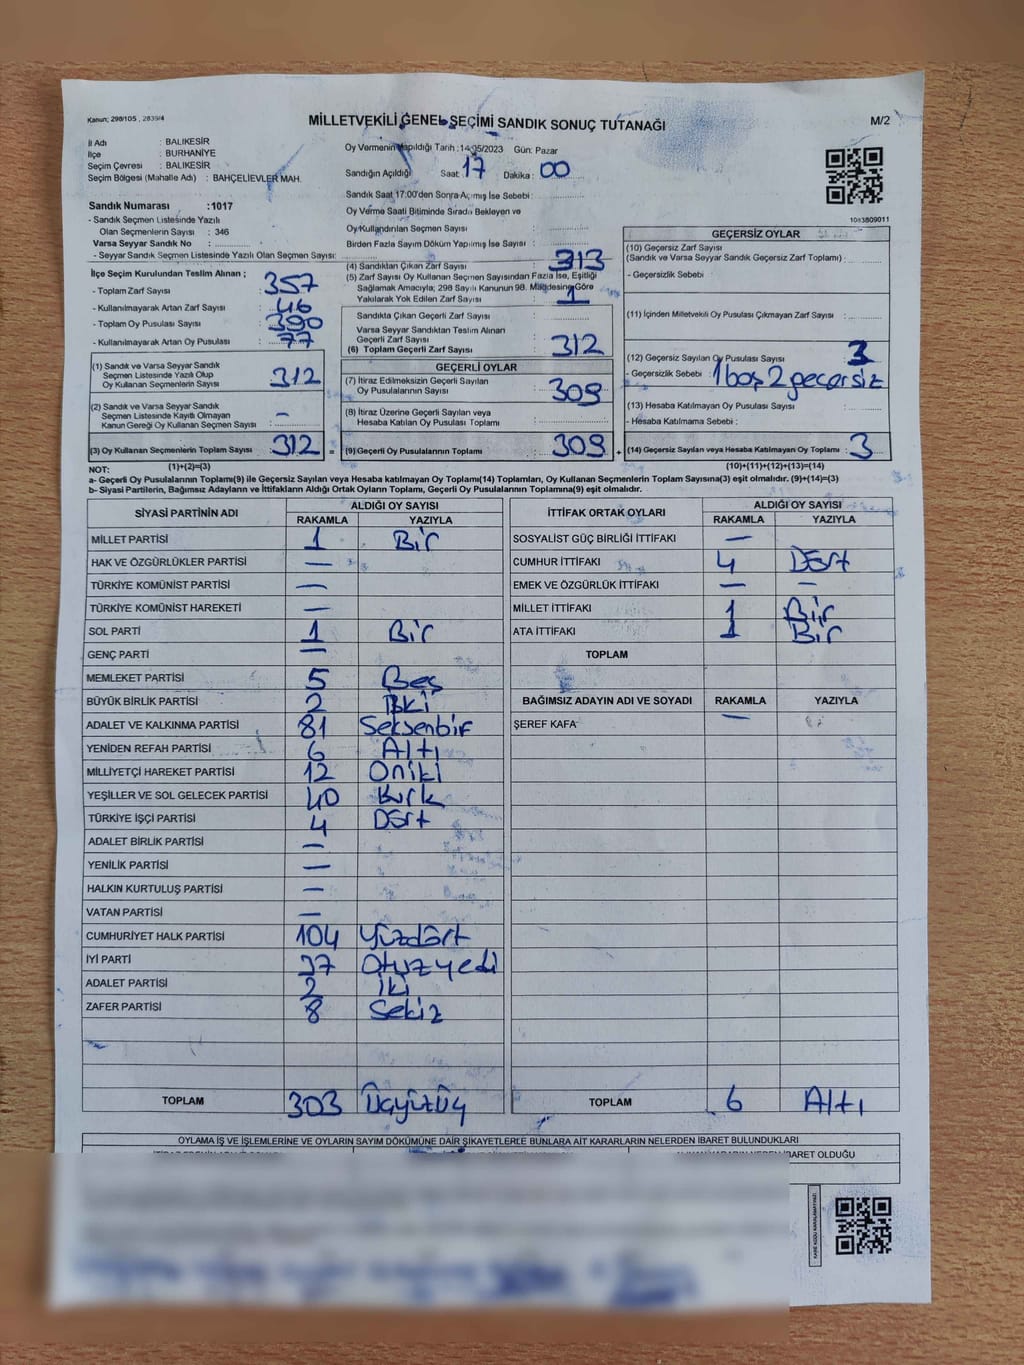 Kanun; 298/105 , 2839/4
MİLLETVEKİLİ GENEL SEÇİMİ SANDIK SONUÇ TUTANAĞI
M/2
İl Adı : BALIKESİR
İlçe : BURHANİYE
Seçim Çevresi : BALIKESİR
Seçim Bölgesi (Mahalle Adı) : BAHÇELİEVLER MAH.
Oy Vermenin Yapıldığı Tarih : 14/05/2023 Gün: Pazar
Sandığın Açıldığı Saat : 17 Dakika : 00
Sandık Saat 17:00'den Sonra Açılmış İse Sebebi :
Oy Verme Saati Bitiminde Sırada Bekleyen ve
Oy Kullandırılan Seçmen Sayısı :
Birden Fazla Sayım Döküm Yapılmış İse Sayısı :
1013809011
Sandık Numarası :1017
- Sandık Seçmen Listesinde Yazılı
Olan Seçmenlerin Sayısı : 346
Varsa Seyyar Sandık No :
- Seyyar Sandık Seçmen Listesinde Yazılı Olan Seçmen Sayısı:
İlçe Seçim Kurulundan Teslim Alınan ;
- Toplam Zarf Sayısı : 357
- Kullanılmayarak Artan Zarf Sayısı : 46
- Toplam Oy Pusulası Sayısı : 390
- Kullanılmayarak Artan Oy Pusulası : 77
(1) Sandık ve Varsa Seyyar Sandık
Seçmen Listesinde Yazılı Olup
Oy Kullanan Seçmenlerin Sayısı : 312
(2) Sandık ve Varsa Seyyar Sandık
Seçmen Listesinde Kayıtlı Olmayan
Kanun Gereği Oy Kullanan Seçmen Sayısı : -
(3) Oy Kullanan Seçmenlerin Toplam Sayısı : 312 =
(4) Sandıktan Çıkan Zarf Sayısı : 313
(5) Zarf Sayısı Oy Kullanan Seçmen Sayısından Fazla İse, Eşitliği
Sağlamak Amacıyla; 298 Sayılı Kanunun 98. Maddesine Göre
Yakılarak Yok Edilen Zarf Sayısı : 1
Sandıkta Çıkan Geçerli Zarf Sayısı :
Varsa Seyyar Sandıktan Teslim Alınan
Geçerli Zarf Sayısı :
(6) Toplam Geçerli Zarf Sayısı : 312
GEÇERLİ OYLAR
(7) İtiraz Edilmeksizin Geçerli Sayılan
Oy Pusulalarının Sayısı : 309
(8) İtiraz Üzerine Geçerli Sayılan veya
Hesaba Katılan Oy Pusulası Toplamı :
(9) Geçerli Oy Pusulalarının Toplamı : 309 +
GEÇERSİZ OYLAR
(10) Geçersiz Zarf Sayısı
(Sandık ve Varsa Seyyar Sandık Geçersiz Zarf Toplamı) :
- Geçersizlik Sebebi
(11) İçinden Milletvekili Oy Pusulası Çıkmayan Zarf Sayısı :
(12) Geçersiz Sayılan Oy Pusulası Sayısı : 3
- Geçersizlik Sebebi : 1 boş 2 geçersiz
(13) Hesaba Katılmayan Oy Pusulası Sayısı :
- Hesaba Katılmama Sebebi :
(14) Geçersiz Sayılan veya Hesaba Katılmayan Oy Toplamı : 3
NOT: (1)+(2)=(3) (10)+(11)+(12)+(13)=(14)
a- Geçerli Oy Pusulalarının Toplamı(9) ile Geçersiz Sayılan veya Hesaba katılmayan Oy Toplamı(14) Toplamları, Oy Kullanan Seçmenlerin Toplam Sayısına(3) eşit olmalıdır. (9)+(14)=(3)
b- Siyasi Partilerin, Bağımsız Adayların ve İttifakların Aldığı Ortak Oyların Toplamı, Geçerli Oy Pusulalarının Toplamına(9) eşit olmalıdır.
SİYASİ PARTİNİN ADI ALDIĞI OY SAYISI
RAKAMLA YAZIYLA
MİLLET PARTİSİ 1 Bir
HAK VE ÖZGÜRLÜKLER PARTİSİ —
TÜRKİYE KOMÜNİST PARTİSİ —
TÜRKİYE KOMÜNİST HAREKETİ —
SOL PARTİ 1 Bir
GENÇ PARTİ —
MEMLEKET PARTİSİ 5 Beş
BÜYÜK BİRLİK PARTİSİ 2 İki
ADALET VE KALKINMA PARTİSİ 81 Seksenbir
YENİDEN REFAH PARTİSİ 6 Altı
MİLLİYETÇİ HAREKET PARTİSİ 12 Oniki
YEŞİLLER VE SOL GELECEK PARTİSİ 40 Kırk
TÜRKİYE İŞÇİ PARTİSİ 4 Dört
ADALET BİRLİK PARTİSİ —
YENİLİK PARTİSİ —
HALKIN KURTULUŞ PARTİSİ —
VATAN PARTİSİ —
CUMHURİYET HALK PARTİSİ 104 Yüzdört
İYİ PARTİ 37 Otuzyedi
ADALET PARTİSİ 2 İki
ZAFER PARTİSİ 8 Sekiz
TOPLAM 303 Üçyüzüç
İTTİFAK ORTAK OYLARI ALDIĞI OY SAYISI
RAKAMLA YAZIYLA
SOSYALİST GÜÇ BİRLİĞİ İTTİFAKI —
CUMHUR İTTİFAKI 4 Dört
EMEK VE ÖZGÜRLÜK İTTİFAKI — —
MİLLET İTTİFAKI 1 Bir
ATA İTTİFAKI 1 Bir
TOPLAM
BAĞIMSIZ ADAYIN ADI VE SOYADI RAKAMLA YAZIYLA
ŞEREF KAFA —
TOPLAM 6 Altı
OYLAMA İŞ VE İŞLEMLERİNE VE OYLARIN SAYIM DÖKÜMÜNE DAİR ŞİKAYETLERLE BUNLARA AİT KARARLARIN NELERDEN İBARET BULUNDUKLARI
İBARET OLDUĞU